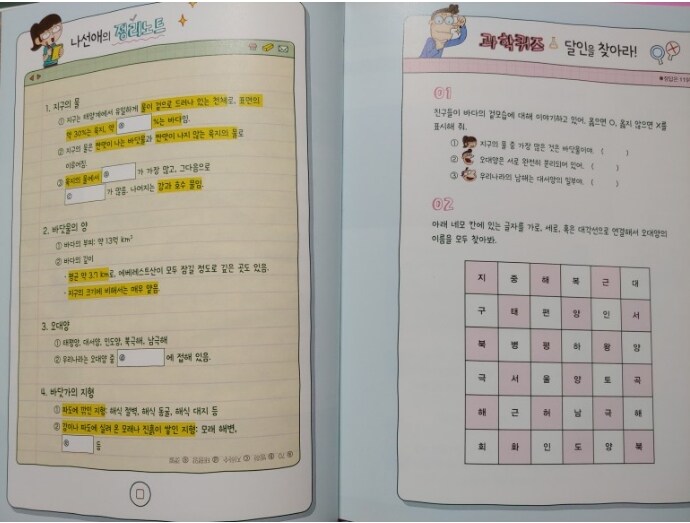 나선애의 정리노트
1. 지구의 물
① 지구는 태양계에서 유일하게 물이 겉으로 드러나 있는 천체로, 표면의
약 30%는 육지, 약 ⓐ %는 바다임.
② 지구의 물은 짠맛이 나는 바닷물과 짠맛이 나지 않는 육지의 물로
이루어짐.
③ 육지의 물에서 ⓑ 가 가장 많고, 그다음으로
ⓒ 가 많음. 나머지는 강과 호수 물임.
2. 바닷물의 양
① 바다의 부피: 약 13억 km³
② 바다의 깊이
- 평균 약 3.7 km로, 에베레스트산이 모두 잠길 정도로 깊은 곳도 있음.
- 지구의 크기에 비해서는 매우 얇음.
3. 오대양
① 태평양, 대서양, 인도양, 북극해, 남극해
② 우리나라는 오대양 중 ⓓ 에 접해 있음.
4. 바닷가의 지형
① 파도에 깎인 지형: 해식 절벽, 해식 동굴, 해식 대지 등
② 강이나 파도에 실려 온 모래나 진흙이 쌓인 지형: 모래 해변,
ⓔ 등
ⓐ 70 ⓑ 빙하 ⓒ 지하수 ⓓ 태평양 ⓔ 갯벌
과학퀴즈 달인을 찾아라!
●정답은 119
01
친구들이 바다의 겉모습에 대해 이야기하고 있어. 옳으면 O, 옳지 않으면 X를
표시해 줘.
① 지구의 물 중 가장 많은 것은 바닷물이야. ( )
② 오대양은 서로 완전히 분리되어 있어. ( )
③ 우리나라의 남해는 대서양의 일부야. ( )
02
아래 네모 칸에 있는 글자를 가로, 세로, 혹은 대각선으로 연결해서 오대양의
이름을 모두 찾아봐.
지 중 해 북 근 대
구 태 편 양 인 서
북 병 평 하 왕 양
극 서 울 양 토 곡
해 근 허 남 극 해
회 화 인 도 양 북